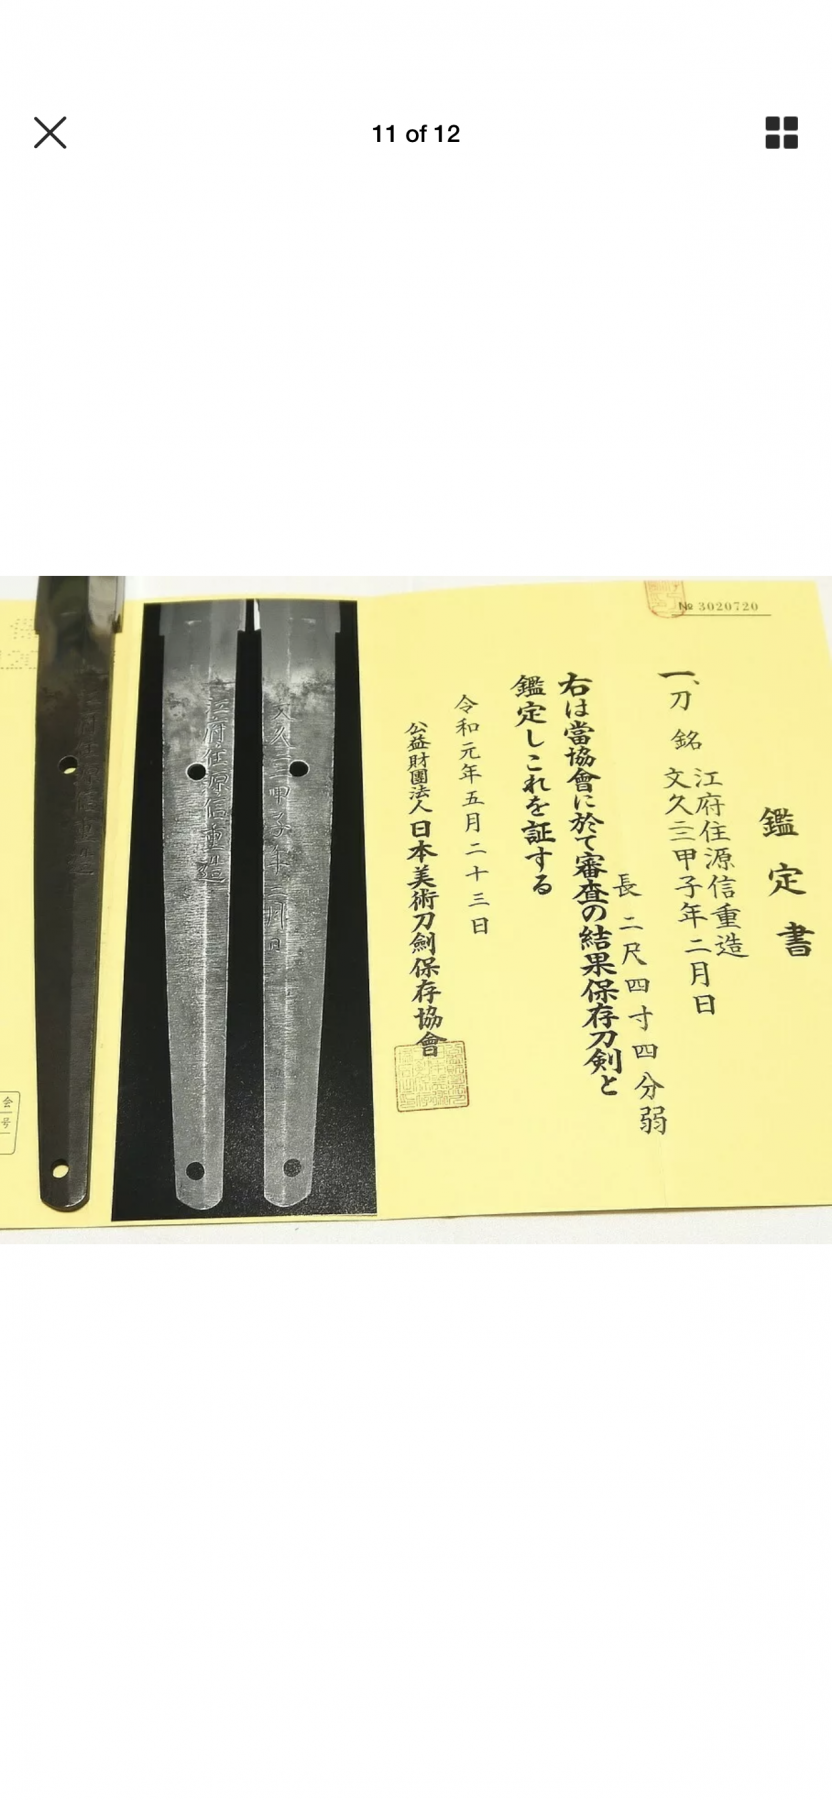 11 of 12
№ 3020720
鑑定書
一、刀 銘 江府住源信重造
文久亖甲子年二月日
長 二尺四寸四分弱
右は當協會に於て審査の結果保存刀剣と
鑑定しこれを証する
令和元年五月二十三日
公益財團法人日本美術刀劍保存協會
文久亖甲子年二月日
江府住源信重造
江府住源信重造
会
号